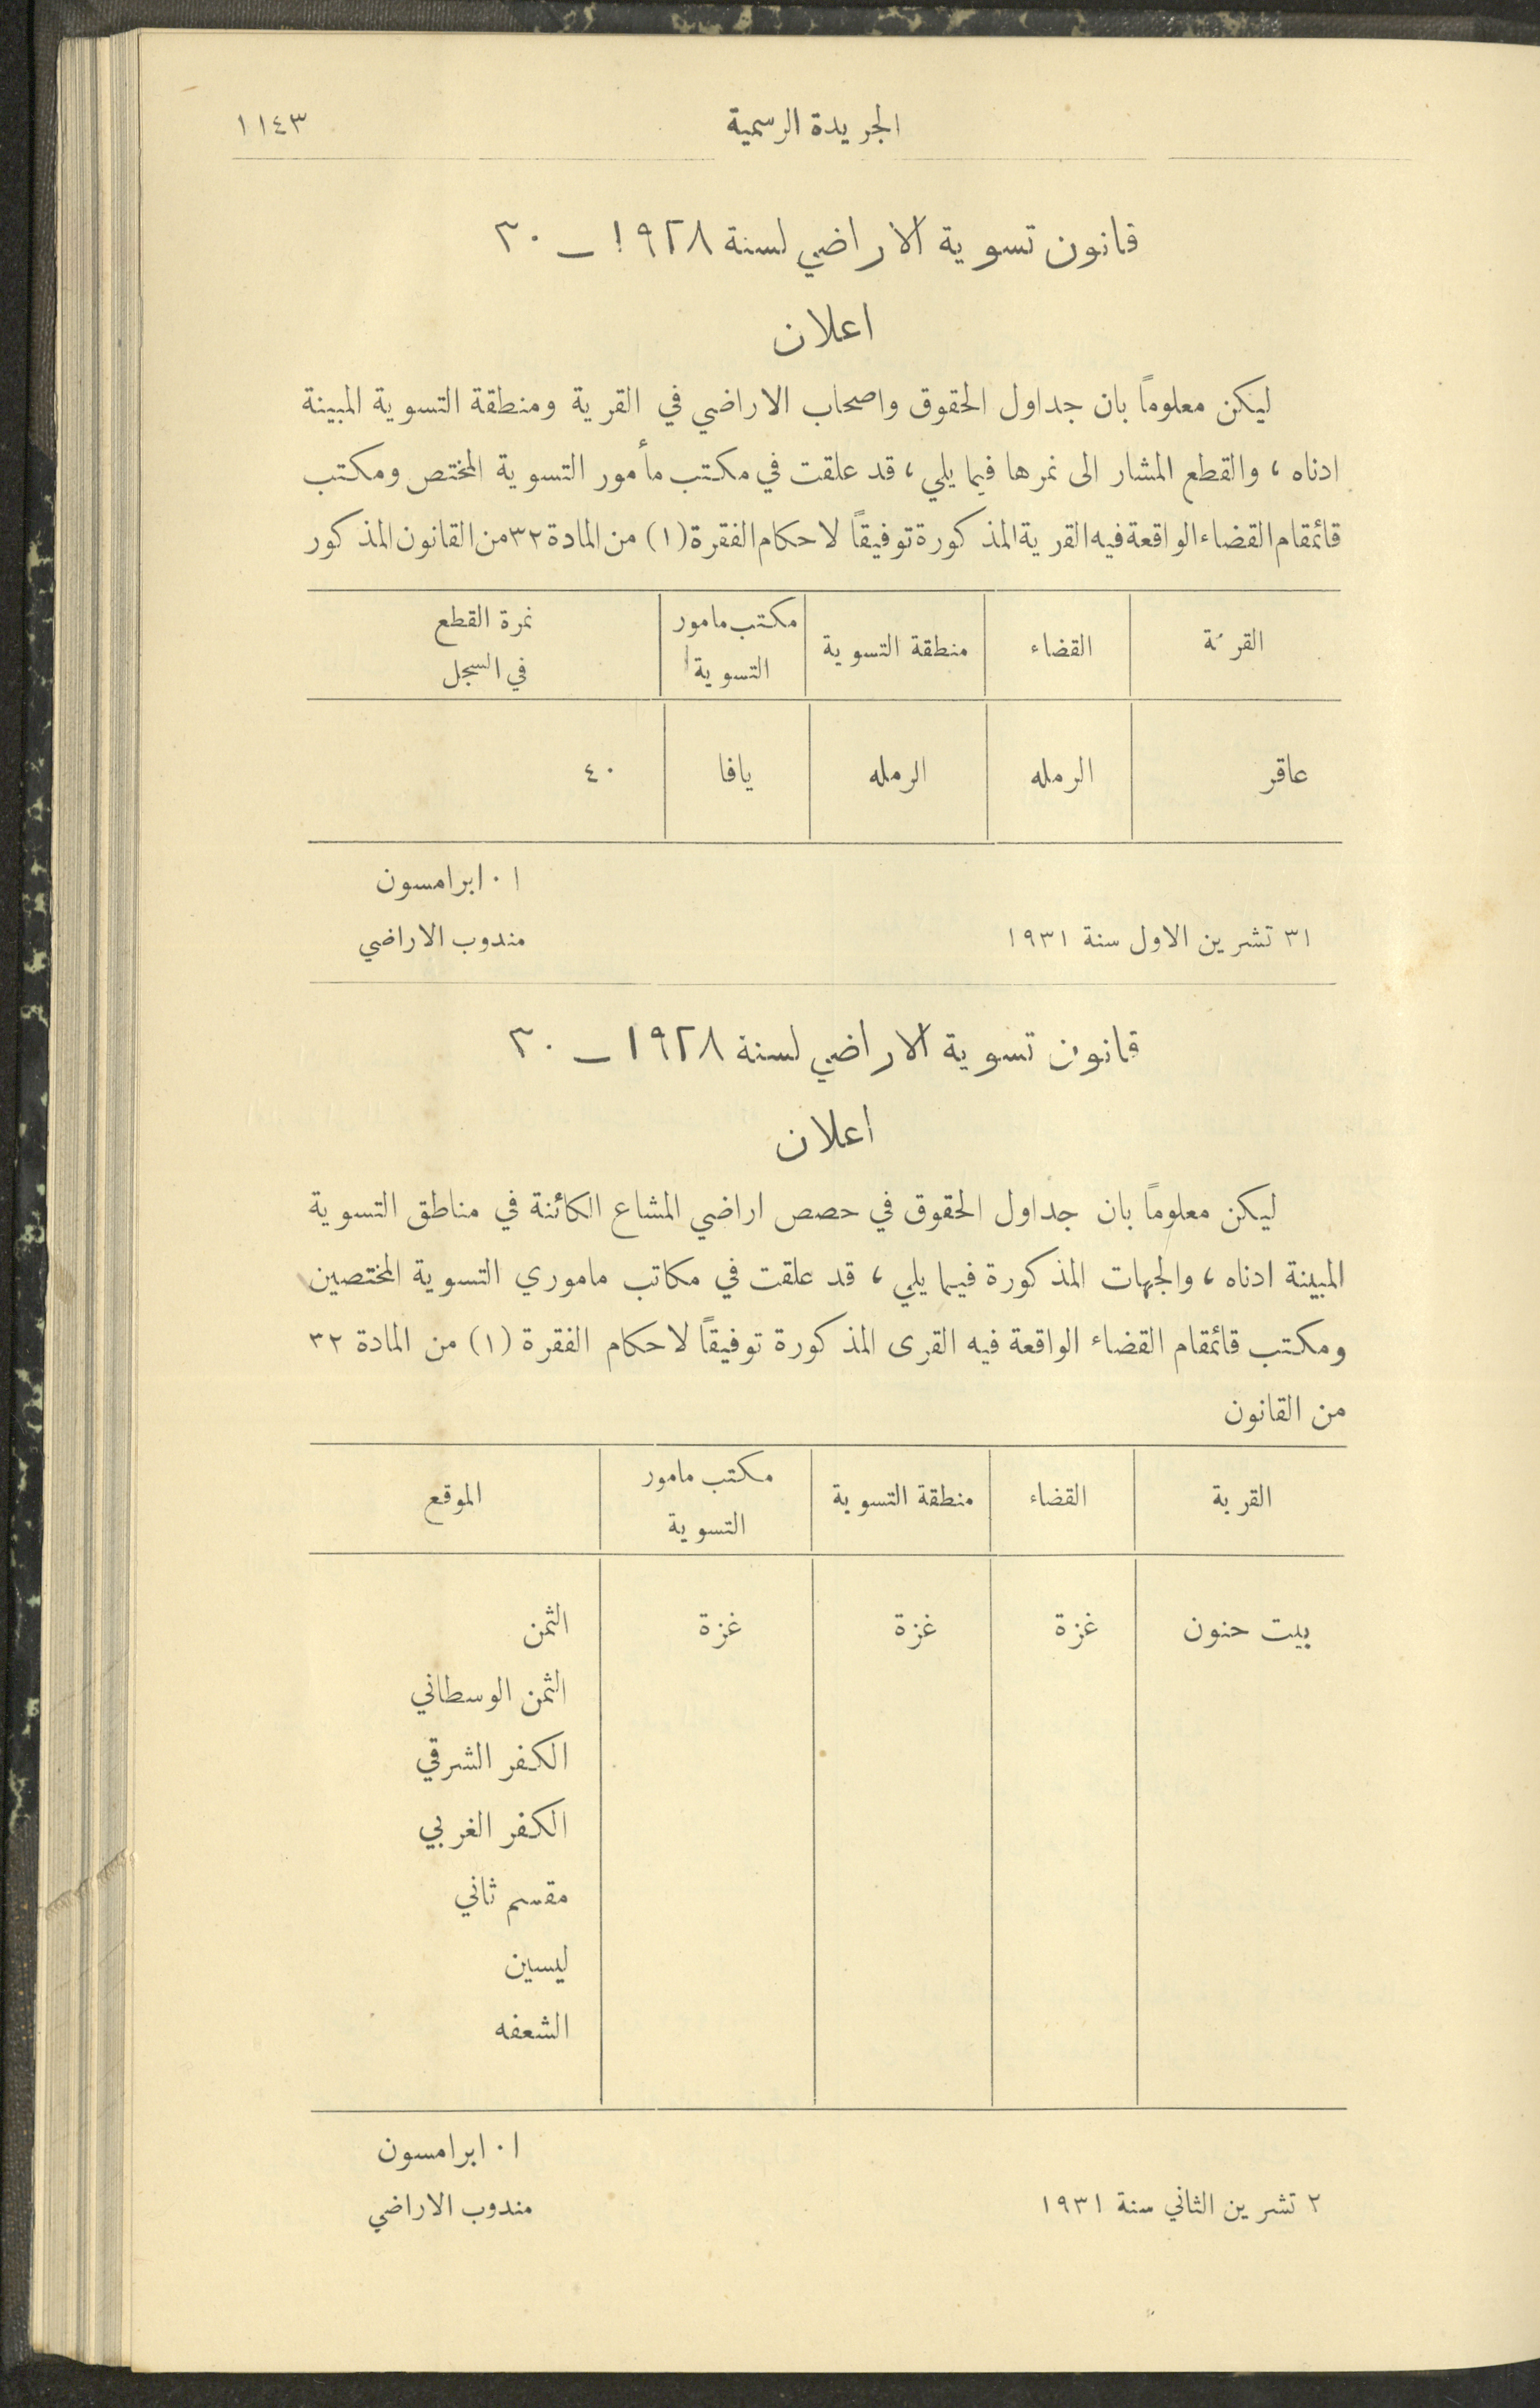 الجريدة الرسمية ١١٤٣
قانون تسوية الاراضي لسنة ١٩٢٨ ــ ٣٠
اعلان
ليكن معلوماً بان جداول الحقوق واصحاب الاراضي في القرية ومنطقة التسوية المبينة
ادناه ، والقطع المشار الى نمرها فيما يلي ، قد علقت في مكتب مأمور التسوية المختص ومكتب
قائمقام القضاء الواقعة فيه القرية المذكورة توفيقاً لاحكام الفقرة (١) من المادة ٣٢ من القانون المذكور
القرية القضاء منطقة التسوية مكتب مامور التسوية نمرة القطع في السجل
عاقر الرمله الرمله يافا ٤٠
ا٠ ابرامسون
٣١ تشرين الاول سنة ١٩٣١ مندوب الاراضي
قانون تسوية الاراضي لسنة ١٩٢٨ ــ ٣٠
اعلان
ليكن معلوماً بان جداول الحقوق في حصص اراضي المشاع الكائنة في مناطق التسوية
المبينة ادناه ، والجهات المذكورة فيما يلي ، قد علقت في مكاتب ماموري التسوية المختصين
ومكتب قائمقام القضاء الواقعة فيه القرى المذكورة توفيقاً لاحكام الفقرة (١) من المادة ٣٢
من القانون
القرية القضاء منطقة التسوية مكتب مامور التسوية الموقع
بيت حنون غزة غزة غزة الثمن
الثمن الوسطاني
الكفر الشرقي
الكفر الغربي
مقسم ثاني
ليسين
الشعفه
ا٠ ابرامسون
٢ تشرين الثاني سنة ١٩٣١ مندوب الاراضي